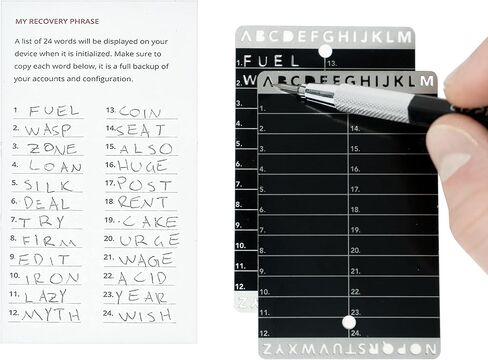 MY RECOVERY PHRASE
A list of 24 words will be displayed on your
device when it is initialized. Make sure to
copy each word below, it is a full backup of
your accounts and configuration.
1. FUEL
2. WASP
3. ZONE
4. LOAN
5. SILK
6. DEAL
7. TRY
8. FIRM
9. EDIT
10. IRON
11. LAZY
12. MYTH
13. COIN
14. SEAT
15. ALSO
16. HUGE
17. POST
18. RENT
19. CAKE
20. URGE
21. WAGE
22. ACID
23. YEAR
24. WISH
ABCDEFGHIJKLM
1. FUEL 13.
2. W
3.
4.
5.
6.
7.
8.
9.
10.
11.
12.
NO
ABCDEFGHIJKLM
1.
2. 14.
3. 15.
4. 16.
5. 17.
6. 18.
7. 19.
8. 20.
9. 21.
10. 22.
11. 23.
12. 24.
NOPQRSTUVWXYZ